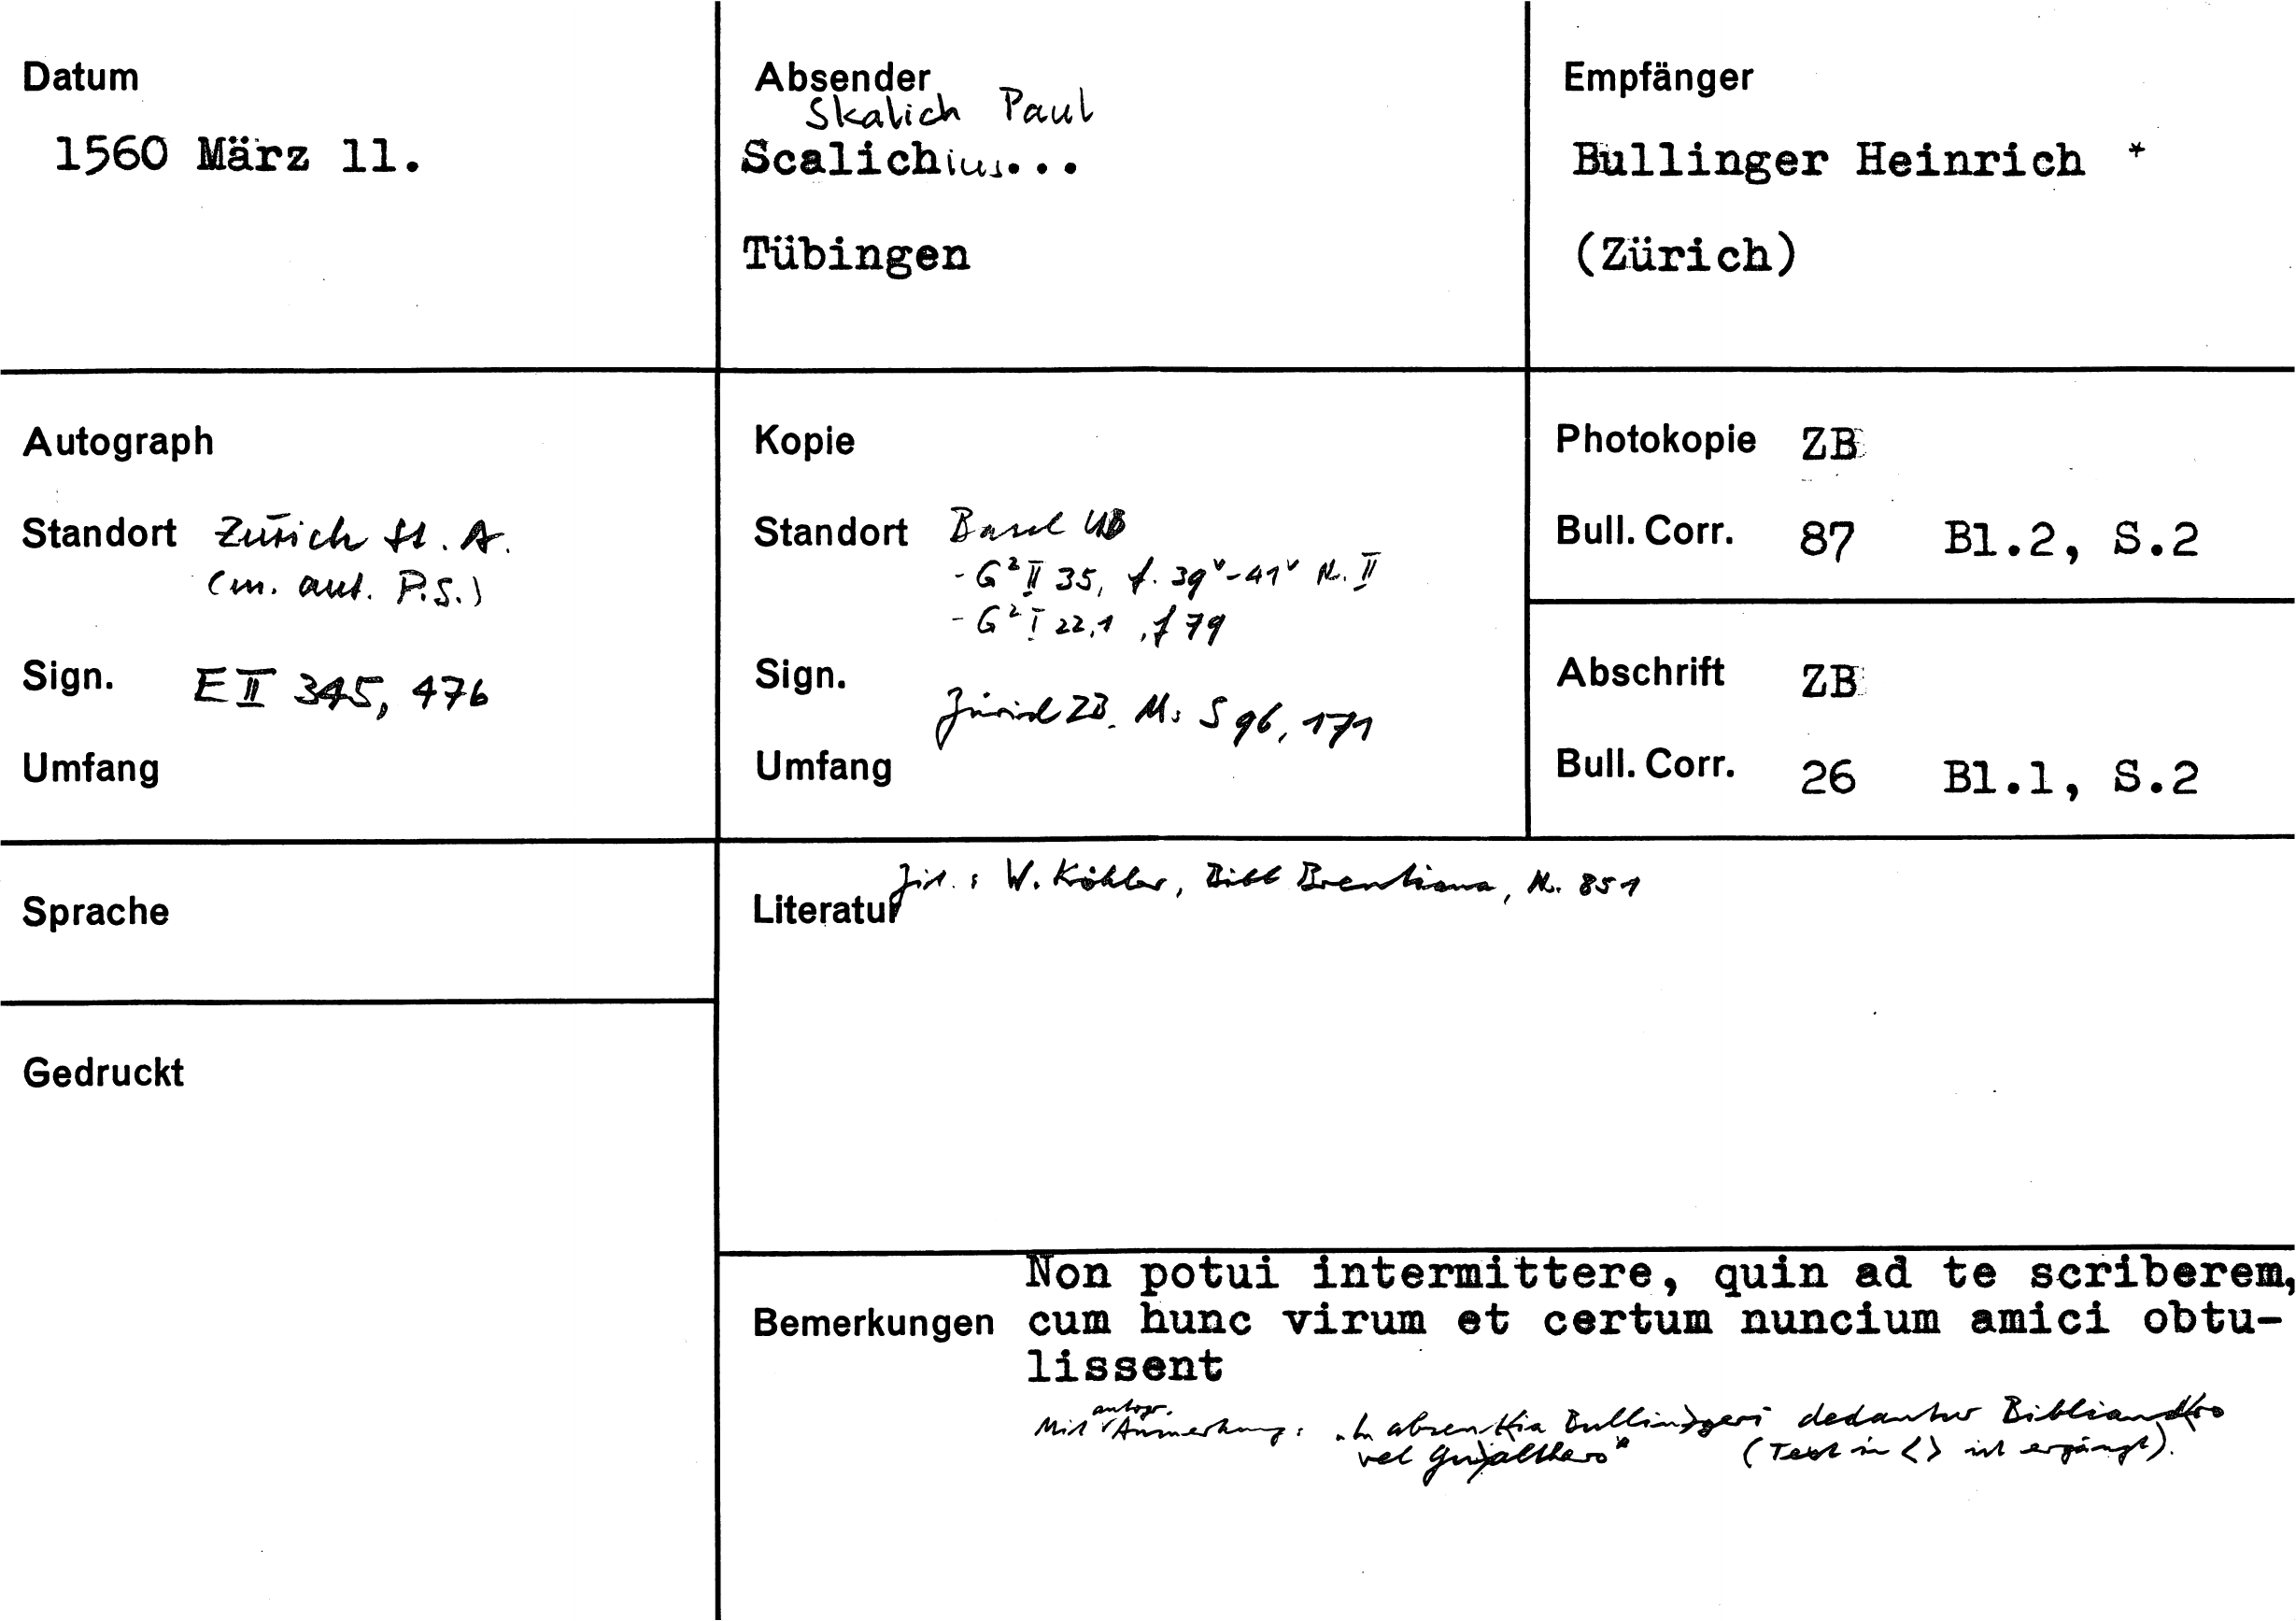 Datum
1560 März 11.
Absender
Skalich Paul
Scalichius...
Tübingen
Empfänger
Bullinger Heinrich *
(Zürich)
Autograph
Standort Zürich St. A.
(m. aut. P.S.)
Sign. E II 345, 476
Umfang
Kopie
Standort Basel UB
- G² II 35, f. 39ᵛ-41ᵛ N. II
- G² I 22,1, f 79
Sign.
Zürich ZB. Ms S 96, 171
Umfang
Photokopie ZB
Bull. Corr. 87 Bl.2, S.2
Abschrift ZB
Bull. Corr. 26 Bl.1, S.2
Sprache
Gedruckt
Literatur Zit.: W. Köhler, Bibl Brentiana, N. 851
Bemerkungen
Non potui intermittere, quin ad te scriberem,
cum hunc virum et certum nuncium amici obtu-
lissent
autogr.
Mit Anmerkung: "In absen<tia Bullin>geri dedantur Bibliand<ro
vel Gu>althero" (Text in <> ist ergänzt).